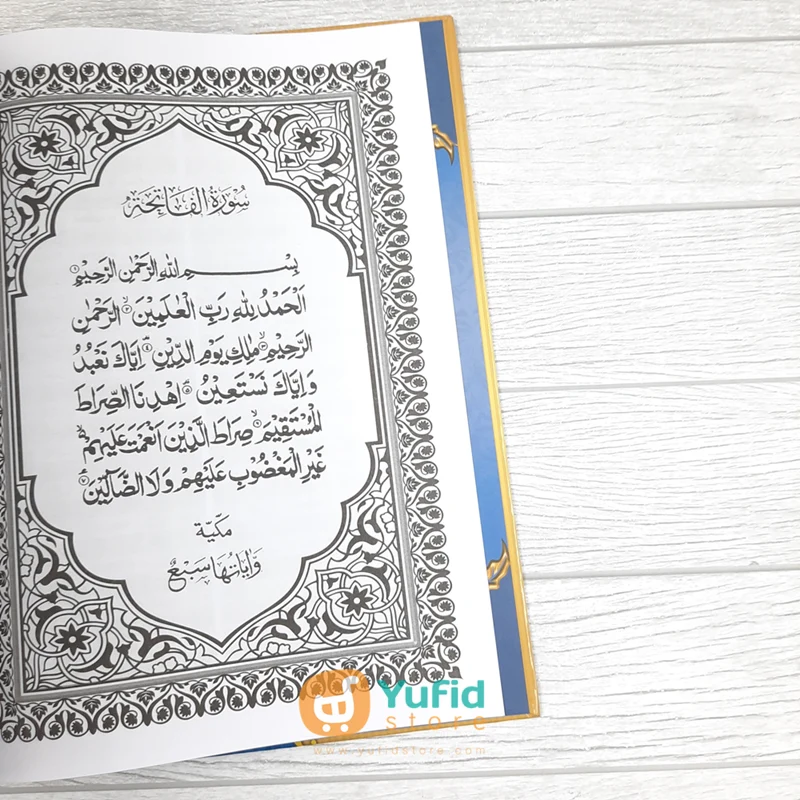 سُورَةُ الْفَاتِحَةِ
بِسْمِ اللهِ الرَّحْمٰنِ الرَّحِيْمِ ۝١
اَلْحَمْدُ لِلّٰهِ رَبِّ الْعٰلَمِيْنَ ۙ۝٢ الرَّحْمٰنِ
الرَّحِيْمِ ۙ۝٣ مٰلِكِ يَوْمِ الدِّيْنِ ۗ۝٤ اِيَّاكَ نَعْبُدُ
وَاِيَّاكَ نَسْتَعِيْنُ ۗ۝٥ اِهْدِنَا الصِّرَاطَ
الْمُسْتَقِيْمَ ۙ۝٦ صِرَاطَ الَّذِيْنَ اَنْعَمْتَ عَلَيْهِمْ ۙ
غَيْرِ الْمَغْضُوْبِ عَلَيْهِمْ وَلَا الضَّآلِّيْنَ ۝٧
مَكِّيَّة
وَاٰيَاتُهَا سَبْعٌ
Yufid
store
www.yufidstore.com